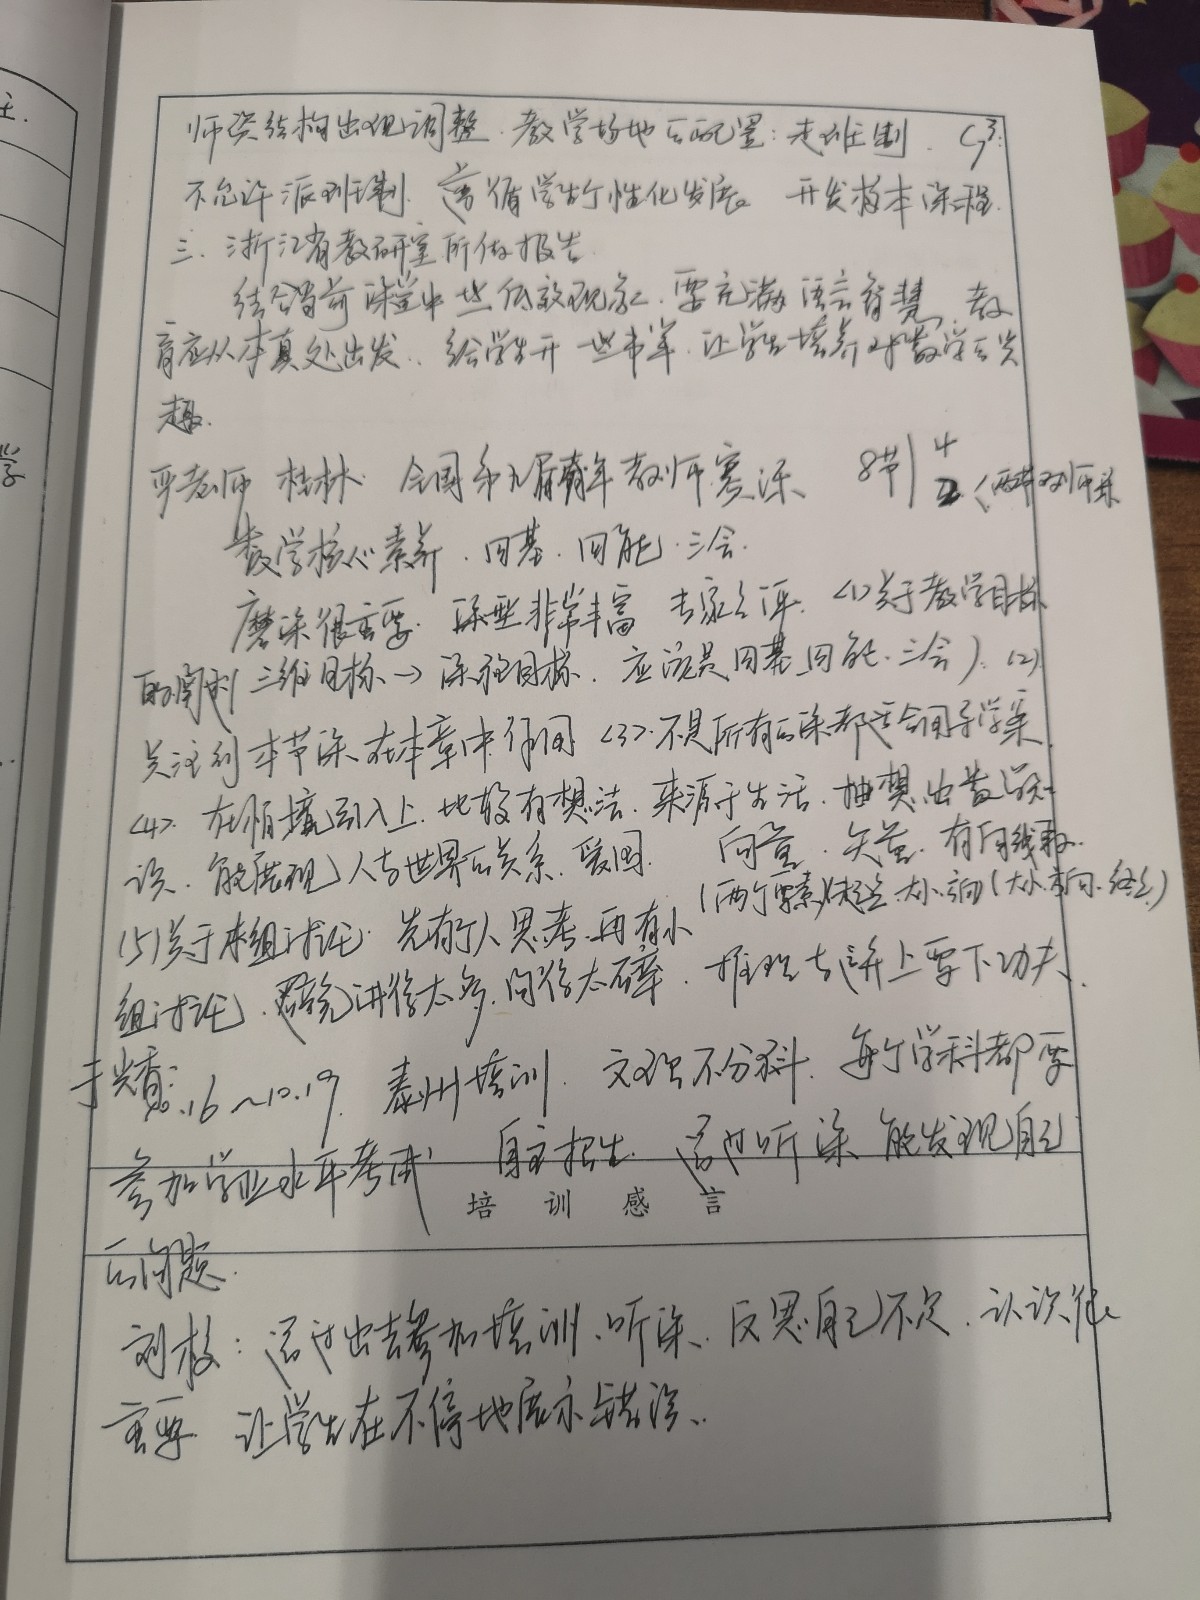 师资结构出现调整. 教学场地的配置: 走班制. C₇³:
不允许派班制. 遵循学生个性化发展. 开发校本课程.
三. 浙江省教研室所做报告.
结合当前课堂中些低效现象. 要充满语言智慧, 教
育应从本真处出发. 给学生开一些书单. 让学生培养对数学的兴
趣.
严老师 桂林. 全国第九届青年教师赛课 8节 4 2 (两节
数学核心素养. 四基. 四能. 三会.
磨课很重要. 课型非常丰富 专家点评. (1)关于教学目标
的阐述 三维目标→课程目标. 应该是四基四能.三会). (2)
关注到本节课在本章中作用 (3).不是所有的课都适合用导学案.
(4). 在情境引入上. 比较有想法. 来源于生活. 抽象出数学知
识. 能展现人与世界的关系. 爱国. 向量. 矢量. 有向线段.
(两个要素) 起点.大小.方向(大小.方向.终点)
(5)关于小组讨论. 先有个人思考.再有小
组讨论. 讲得太多. 问得太碎. 推理与运算上要下功夫.
10.16～10.19. 泰州培训. 文理不分科. 每个学科都要
参加学业水平考试 自主招生. 通过听课 能发现自己
培 训 感 言
的问题.
刘校: 通过出去参加培训.听课. 反思自己不足. 认识很
重要. 让学生在不停地展示与